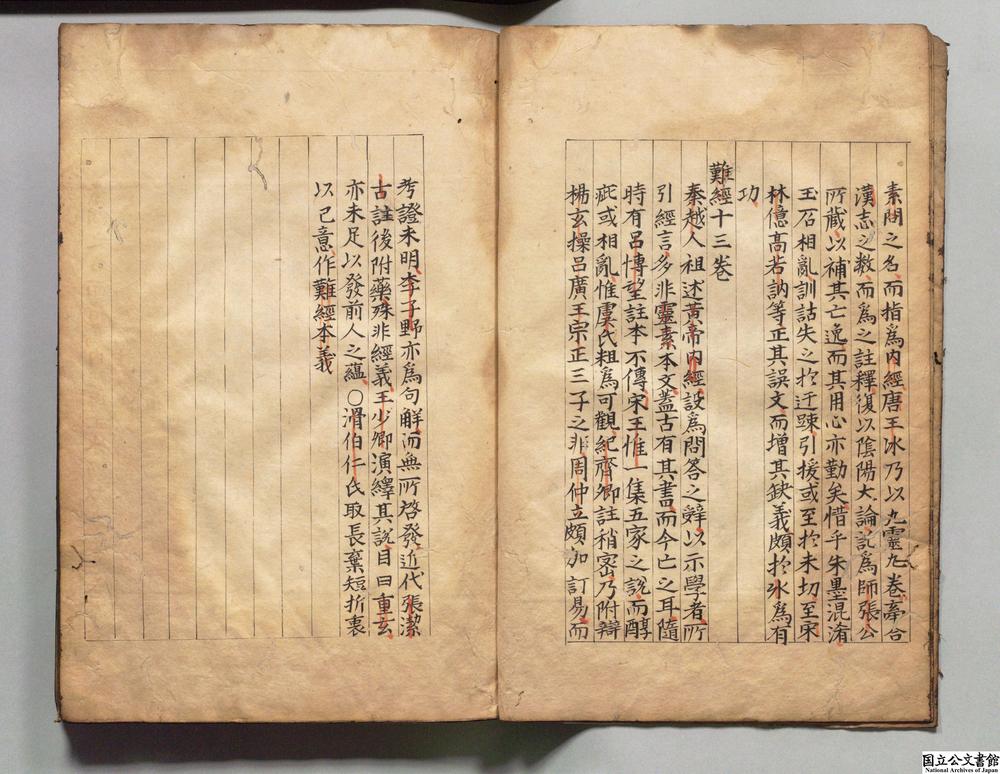 素問之名而指爲内經唐王冰乃以九靈九卷牽合
漢志之數而爲之註釋復以陰陽大論託爲師張公
所藏以補其亡逸而其用心亦勤矣惜乎朱墨混淆
玉石相亂訓詁失之於迂踈引援或至於未切至宋
林億高若訥等正其誤文而增其缺義頗於冰爲有
功
難經十三卷
秦越人祖述黃帝内經設爲問答之辭以示學者所
引經言多非靈素本文蓋古有其書而今亡之耳隨
時有呂博望註本不傳宋王惟一集五家之說而醇
疵或相亂惟虞氏粗爲可觀紀齊卿註稍密乃附辯
楊玄操呂廣王宗正三子之非周仲立頗加訂易而
考證未明李子野亦爲句解而無所啓發近代張潔
古註後附藥殊非經義王少卿演繹其說目曰重玄
亦未足以發前人之蘊〇滑伯仁氏取長棄短折衷
以己意作難經本義
国立公文書館
National Archives of Japan